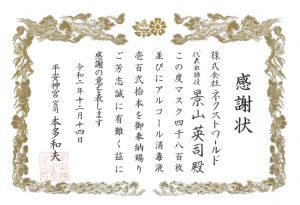 感謝状
株式会社ネクストワールド
代表取締役 景山英司殿
この度マスク四千八百枚
並びにアルコール消毒液
壱百弐拾本を御奉納賜り
ご芳志誠に有難く茲に
感謝の意を表します
令和二年十二月十四日
平安神宮宮司 本多和夫